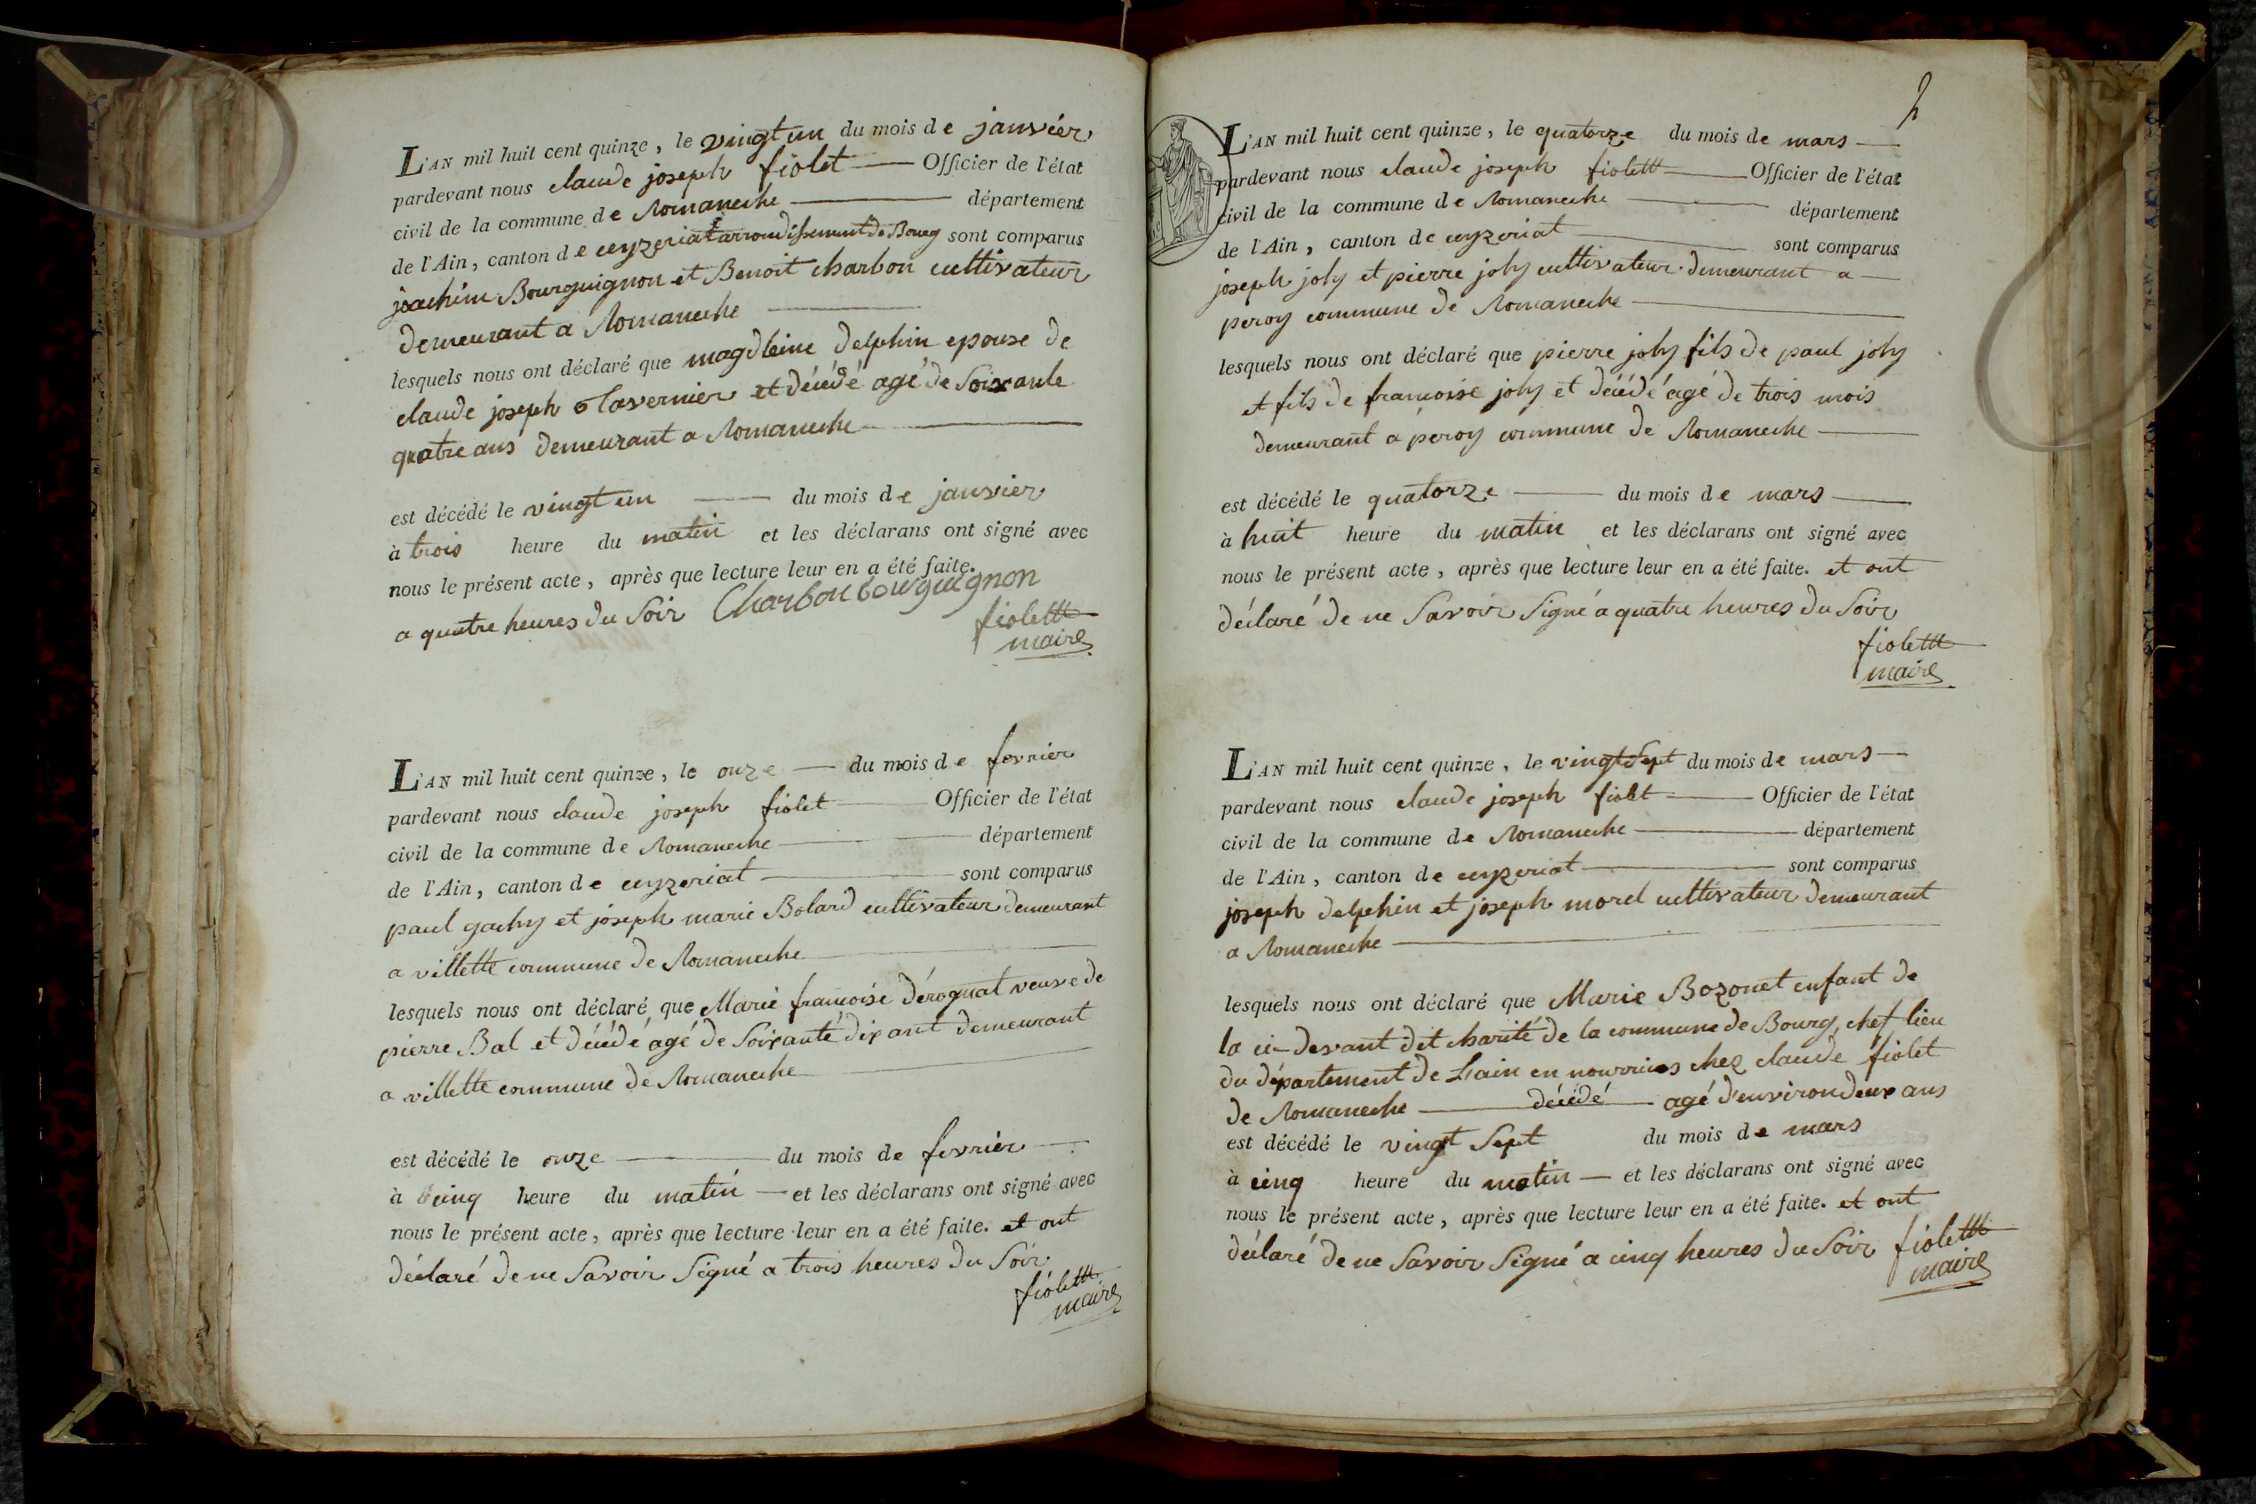 L'AN mil huit cent quinze, le vingt un du mois de janvier
pardevant nous claude joseph fiolet Officier de l'état
civil de la commune de Romaneche département
de l'Ain, canton de ceyzeriat arrondissement de Bourg sont comparus
joachim Bourguignon et Benoit charbon cultivateur
demeurant a Romaneche
lesquels nous ont déclaré que magdleine delphin epouse de
claude joseph Tavernier et décédé agé de soixante
quatre ans demeurant a Romaneche
est décédé le vingt un du mois de janvier
à trois heure du matin et les déclarans ont signé avec
nous le présent acte, après que lecture leur en a été faite.
a quatre heures du soir Charbon bourguignon
fiolett
maire
L'AN mil huit cent quinze, le onze du mois de fevrier
pardevant nous claude joseph fiolet Officier de l'état
civil de la commune de Romaneche département
de l'Ain, canton de ceyzeriat sont comparus
paul gachy et joseph marie Bolard cultivateur demeurant
a villette commune de Romaneche
lesquels nous ont déclaré que Marie francoise dérognat veuve de
pierre Bal et décédé agé de soixante dix ant demeurant
a villette commune de Romaneche
est décédé le onze du mois de fevrier
à cinq heure du matin et les déclarans ont signé avec
nous le présent acte, après que lecture leur en a été faite. et ont
déclaré de ne savoir signé a trois heures du soir
fiolett
maire
2
L'AN mil huit cent quinze, le quatorze du mois de mars
pardevant nous claude joseph fiolett Officier de l'état
civil de la commune de Romaneche département
de l'Ain, canton de ceyzeriat sont comparus
joseph joly et pierre joly cultivateur demeurant a
peroy commune de Romaneche
lesquels nous ont déclaré que pierre joly fils de paul joly
et fils de francoise joly et décédé agé de trois mois
demeurant a peroy commune de Romaneche
est décédé le quatorze du mois de mars
à huit heure du matin et les déclarans ont signé avec
nous le présent acte, après que lecture leur en a été faite. et ont
déclaré de ne savoir signé a quatre heures du soir
fiolett
maire
L'AN mil huit cent quinze, le vingt sept du mois de mars
pardevant nous claude joseph fiolet Officier de l'état
civil de la commune de Romaneche département
de l'Ain, canton de ceyzeriat sont comparus
joseph delphin et joseph morel cultivateur demeurant
a Romaneche
lesquels nous ont déclaré que Marie Bozonet enfant de
la ci-devant dit charité de la commune de Bourg, chef lieu
du département de Lain en nourrices chez claude fiolet
de Romaneche décédé agé d'environ deux ans
est décédé le vingt sept du mois de mars
à cinq heure du matin et les déclarans ont signé avec
nous le présent acte, après que lecture leur en a été faite. et ont
déclaré de ne savoir signé a cinq heures du soir fiolett
maire